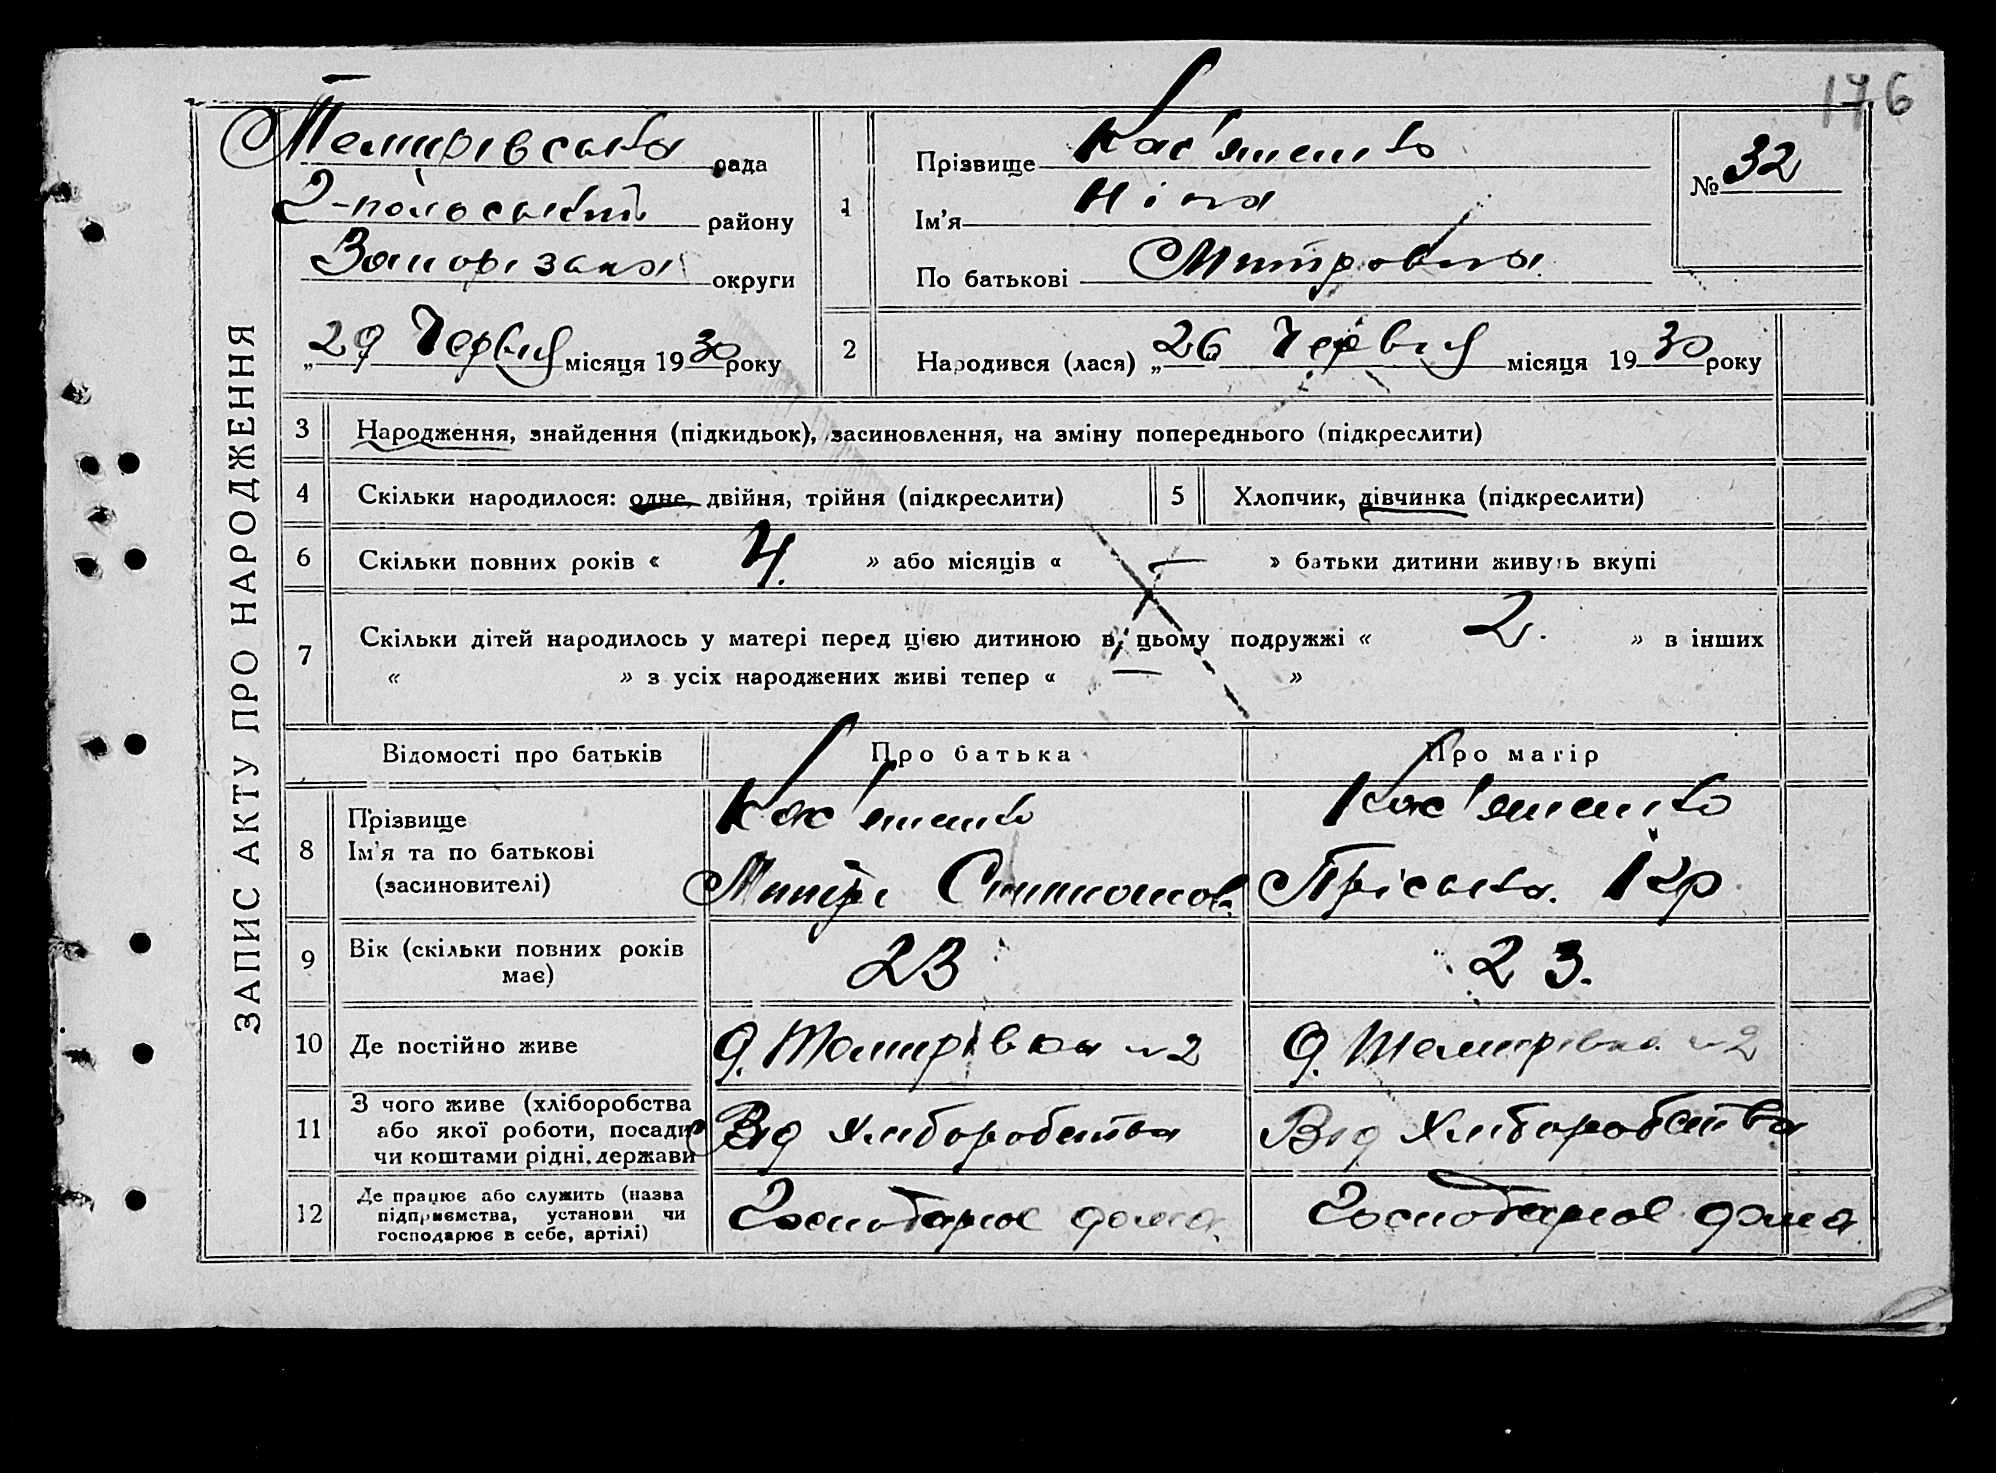 176
ЗАПИС АКТУ ПРО НАРОДЖЕННЯ
Темирівська рада
Г-польський району
Запорізька округи
„29 Червня місяця 1930 року
1
Прізвище Кас'яненко
Ім'я Ніна
По батькові Митровна
№ 32
2
Народився (лася) „26 Червня місяця 1930 року
3 Народження, знайдення (підкидьок), засиновлення, на зміну попереднього (підкреслити)
4 Скільки народилося: одне, двійня, трійня (підкреслити)
5 Хлопчик, дівчинка (підкреслити)
6 Скільки повних років « 4. » або місяців « — » батьки дитини живуть вкупі
7 Скільки дітей народилось у матері перед цією дитиною в цьому подружжі « 2. » в інших
« » з усіх народжених живі тепер « — »
Відомості про батьків Про батька Про матір
8 Прізвище
Ім'я та по батькові
(засиновителі)
Кас'яненко
Митро
Кас'яненко
Пріська.
9 Вік (скільки повних років
має)
23
23.
10 Де постійно живе
с. Темирівка №2
с. Темирівка №2
11 З чого живе (хліборобства
або якої роботи, посади
чи коштами рідні, держави
Від хліборобства
Від хліборобства
12 Де працює або служить (назва
підприємства, установи чи
господарює в себе, артілі)
Господарює дома.
Господарює дома.